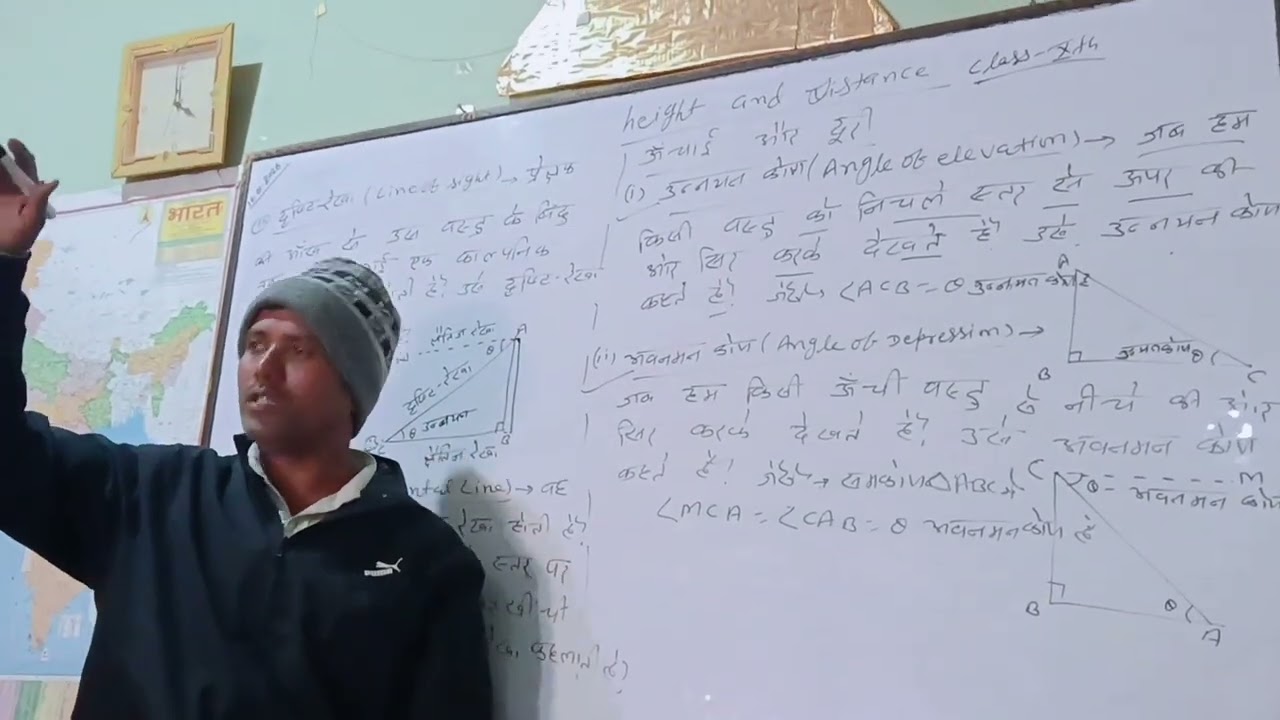 height and Distance class-xth
ऊँचाई और दूरी
(i) उन्नयन कोण (Angle of elevation) → जब हम
किसी वस्तु को निचले स्तर से ऊपर की
ओर सिर करके देखते है? उसे उन्नयन कोण
कहते है? जैसे→ ∠ACB = θ उन्नयन कोण है
A
B
उन्नयन कोण θ
C
(ii) अवनमन कोण (Angle of Depression) →
जब हम किसी ऊँची वस्तु से नीचे की ओर
सिर करके देखते है? उसे अवनमन कोण
कहते है! जैसे→ समकोण △ABC में
∠MCA = ∠CAB = θ अवनमन कोण है
C
M
θ = अवनमन कोण
B
θ
A
दृष्टि-रेखा (Line of sight) → प्रेक्षक
की आँख से उस वस्तु के बिंदु
एक काल्पनिक
है? उसे दृष्टि-रेखा
क्षैतिज रेखा
A
θ
दृष्टि-रेखा
θ उन्नयन
B
क्षैतिज रेखा
ntal Line) → वह
रेखा होती है?
स्तर पर
कहलाती है?
भारत
PUMA